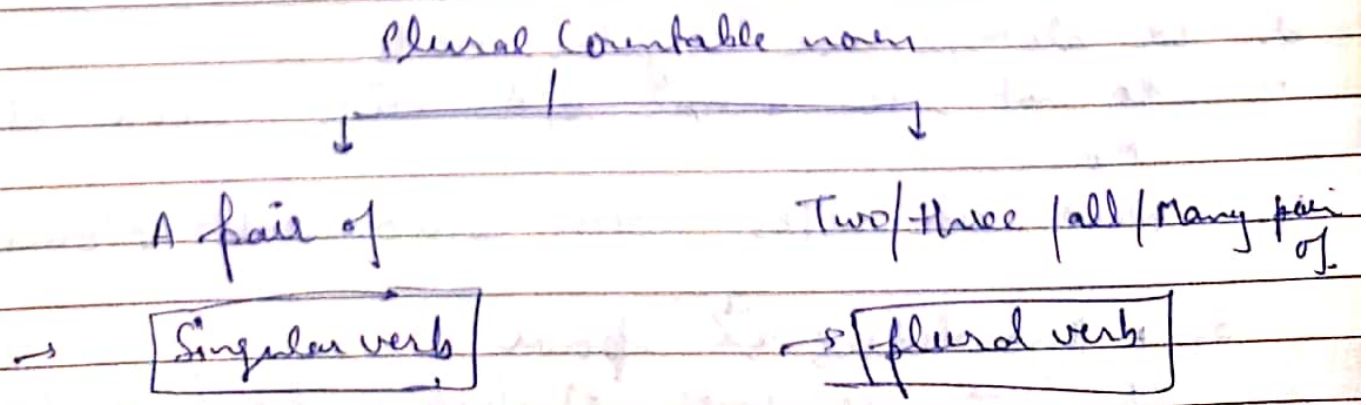 Plural Countable noun
A pair of
Two/three/all/Many pair of
Singular verb
plural verb